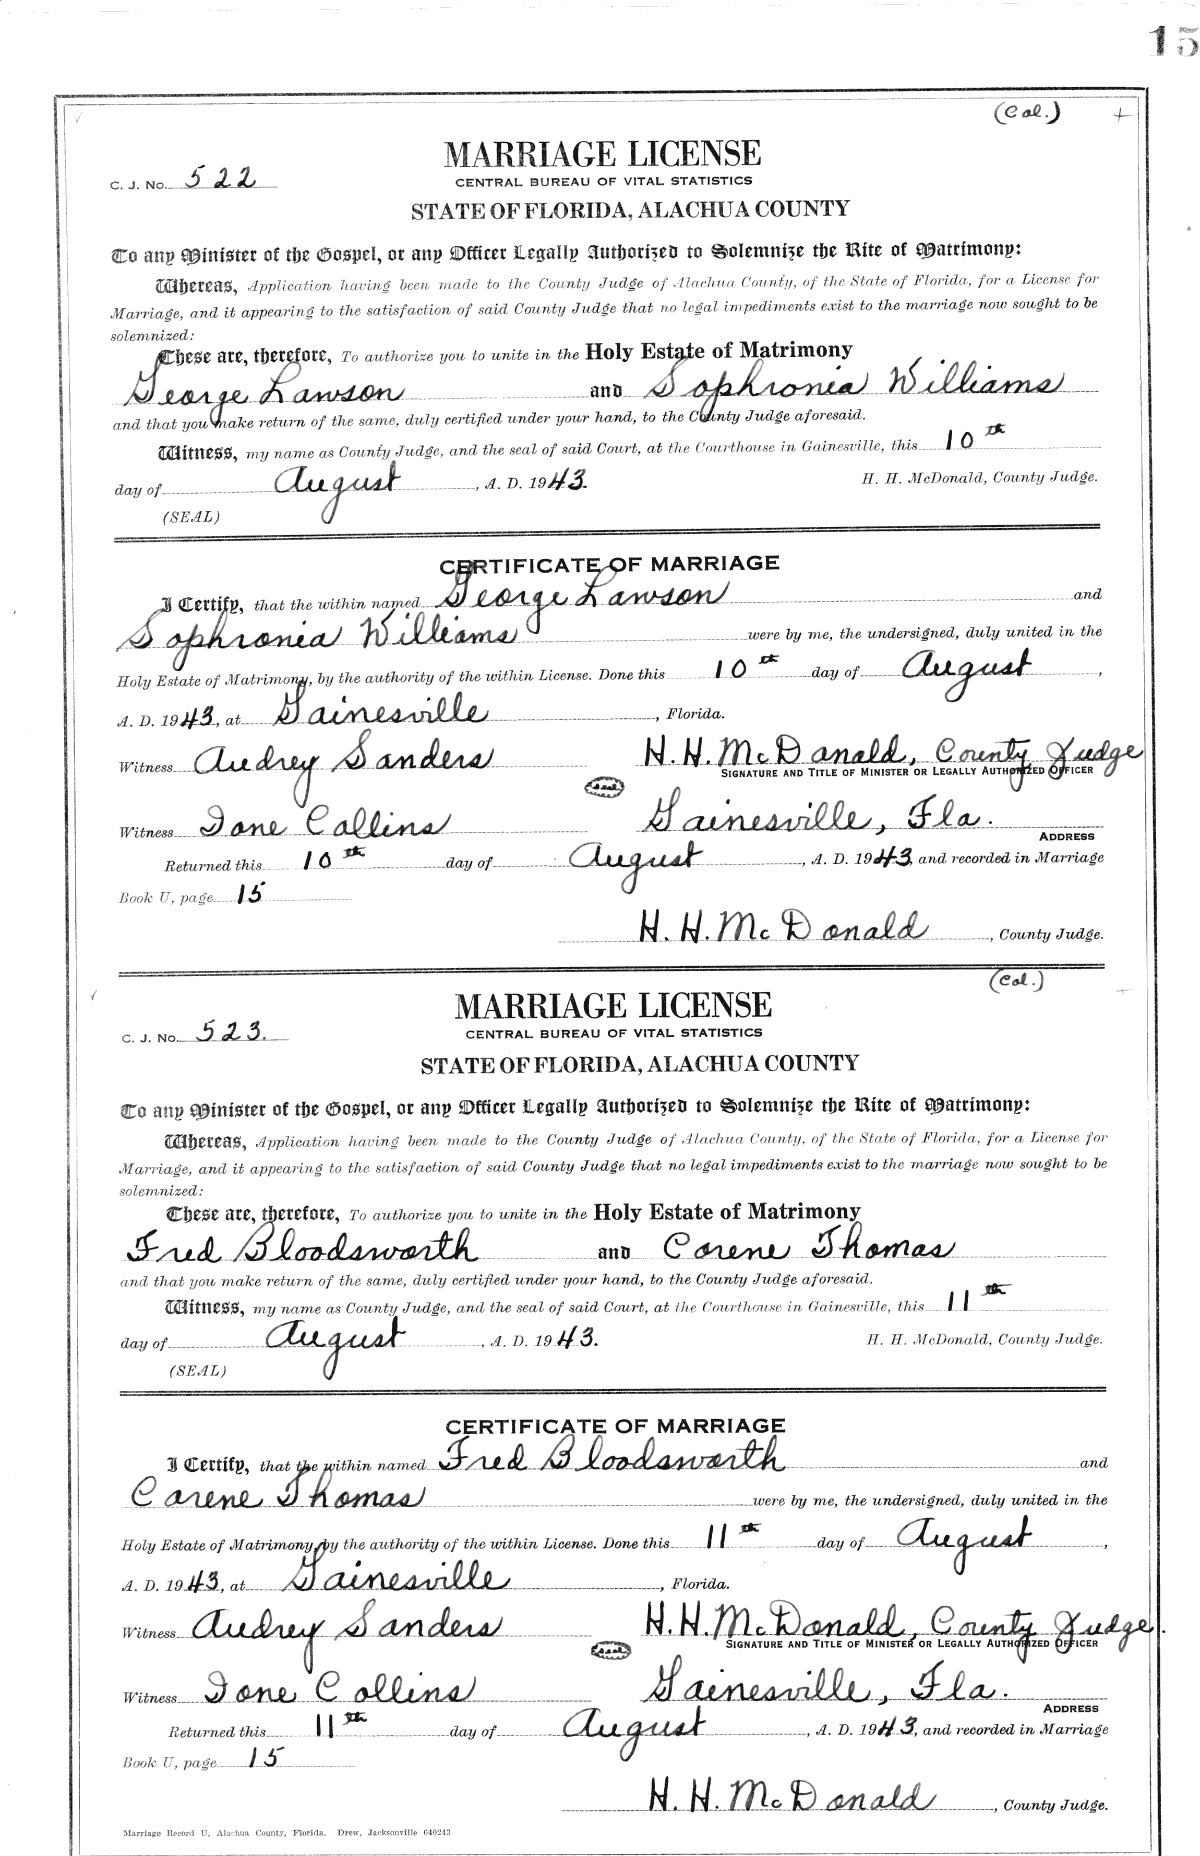 15
(Col.) +
MARRIAGE LICENSE
C. J. No. 522
CENTRAL BUREAU OF VITAL STATISTICS
STATE OF FLORIDA, ALACHUA COUNTY
To any Minister of the Gospel, or any Officer Legally Authorized to Solemnize the Rite of Matrimony:
Whereas, Application having been made to the County Judge of Alachua County, of the State of Florida, for a License for
Marriage, and it appearing to the satisfaction of said County Judge that no legal impediments exist to the marriage now sought to be
solemnized:
These are, therefore, To authorize you to unite in the Holy Estate of Matrimony
George Lawson and Sophronia Williams
and that you make return of the same, duly certified under your hand, to the County Judge aforesaid.
Witness, my name as County Judge, and the seal of said Court, at the Courthouse in Gainesville, this 10th
day of August, A. D. 1943. H. H. McDonald, County Judge.
(SEAL)
CERTIFICATE OF MARRIAGE
I Certify, that the within named George Lawson and
Sophronia Williams were by me, the undersigned, duly united in the
Holy Estate of Matrimony, by the authority of the within License. Done this 10th day of August,
A. D. 1943, at Gainesville, Florida.
Witness Audrey Sanders H. H. McDonald, County Judge
SIGNATURE AND TITLE OF MINISTER OR LEGALLY AUTHORIZED OFFICER
(seal)
Witness Ione Collins Gainesville, Fla.
ADDRESS
Returned this 10th day of August, A. D. 1943, and recorded in Marriage
Book U, page 15
H. H. McDonald, County Judge.
(Col.) +
MARRIAGE LICENSE
C. J. No. 523.
CENTRAL BUREAU OF VITAL STATISTICS
STATE OF FLORIDA, ALACHUA COUNTY
To any Minister of the Gospel, or any Officer Legally Authorized to Solemnize the Rite of Matrimony:
Whereas, Application having been made to the County Judge of Alachua County, of the State of Florida, for a License for
Marriage, and it appearing to the satisfaction of said County Judge that no legal impediments exist to the marriage now sought to be
solemnized:
These are, therefore, To authorize you to unite in the Holy Estate of Matrimony
Fred Bloodsworth and Corene Thomas
and that you make return of the same, duly certified under your hand, to the County Judge aforesaid.
Witness, my name as County Judge, and the seal of said Court, at the Courthouse in Gainesville, this 11th
day of August, A. D. 1943. H. H. McDonald, County Judge.
(SEAL)
CERTIFICATE OF MARRIAGE
I Certify, that the within named Fred Bloodsworth and
Corene Thomas were by me, the undersigned, duly united in the
Holy Estate of Matrimony, by the authority of the within License. Done this 11th day of August,
A. D. 1943, at Gainesville, Florida.
Witness Audrey Sanders H. H. McDonald, County Judge.
SIGNATURE AND TITLE OF MINISTER OR LEGALLY AUTHORIZED OFFICER
(seal)
Witness Ione Collins Gainesville, Fla.
ADDRESS
Returned this 11th day of August, A. D. 1943, and recorded in Marriage
Book U, page 15
H. H. McDonald, County Judge.
Marriage Record U, Alachua County, Florida. Drew, Jacksonville 640243